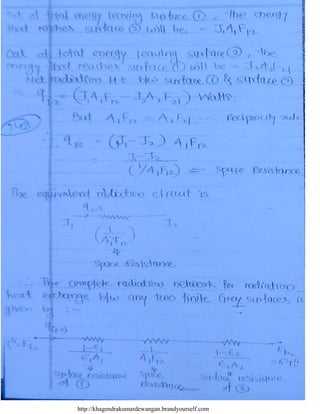 Out of total energy leaving surface ①, the energy
that reaches surface ② will be = J₁A₁F₁₂
Out of total energy leaving surface ②, the
energy that reaches surface ① will be = J₂A₂F₂₁
Net radiation H.E. b/w surface ① & surface ②
is q₁₋₂ = (J₁A₁F₁₂ - J₂A₂F₂₁) Watts.
But A₁F₁₂ = A₂F₂₁ -- Reciprocity rule
q₁₂ = (J₁ - J₂) A₁F₁₂
= J₁-J₂ / (1/A₁F₁₂) ← Space Resistance
The equivalent radiation circuit is
q₁₋₂
J₁ J₂
(1/A₁F₁₂)
Space Resistance
∴ The complete radiation network for radiation
heat exchange b/w any two finite Grey surfaces, is
given by :-
q₍₁₋₂₎
Eb₁ Eb₂
1-ε₁/ε₁A₁ 1/A₁F₁₂ 1-ε₂/ε₂A₂ = σT₂⁴
Surface resistance Space Surface resistance
of ① Resistance of ②
http://khagendrakumardewangan.brandyourself.com